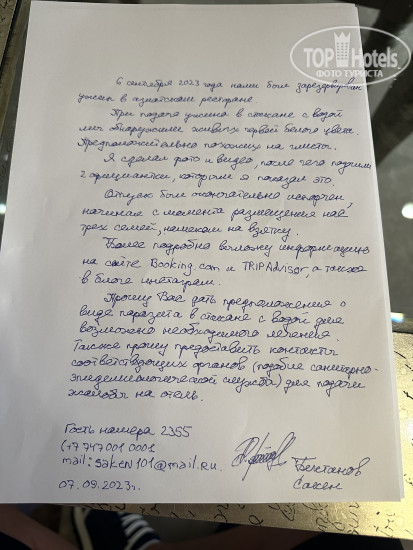 TOPHotels
ФОТО ТУРИСТА
6 сентября 2023 года нами был зарезервирован
ужин в азиатском ресторане.
При подаче ужина в стакане с водой
мы обнаружили живых червей белого цвета.
Предположительно похожих на глисты.
Я сделал фото и видео, после чего подошли
2 официантки, которым я показал это.
Отпуск был окончательно испорчен,
начиная с момента размещения нас
трех семей, намекали на взятку.
Более подробно выложу информацию
на сайте Booking.com и TRIPAdvisor, а также
в блоге инстаграм.
Прошу Вас дать предположения о
виде паразита в стакане с водой для
возможно необходимого лечения.
Также прошу предоставить контакты
соответствующих органов (подобие санитарно-
эпидемиологической службы) для подачи
жалобы на отель.
Гость номера 2355
(+7 747 001 0001
mail: saken101@mail.ru.
07.09.2023г.
Бектанов
Сакен